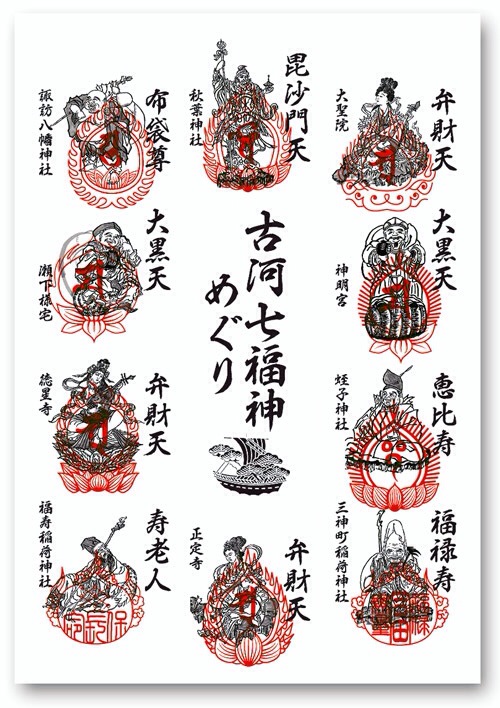 弁財天
大聖院
毘沙門天
秋葉神社
布袋尊
諏訪八幡神社
大黒天
神明宮
古河七福神
めぐり
大黒天
瀬下様宅
恵比寿
蛭子神社
弁財天
徳星寺
福禄寿
三神町稲荷神社
弁財天
正定寺
寿老人
福寿稲荷神社